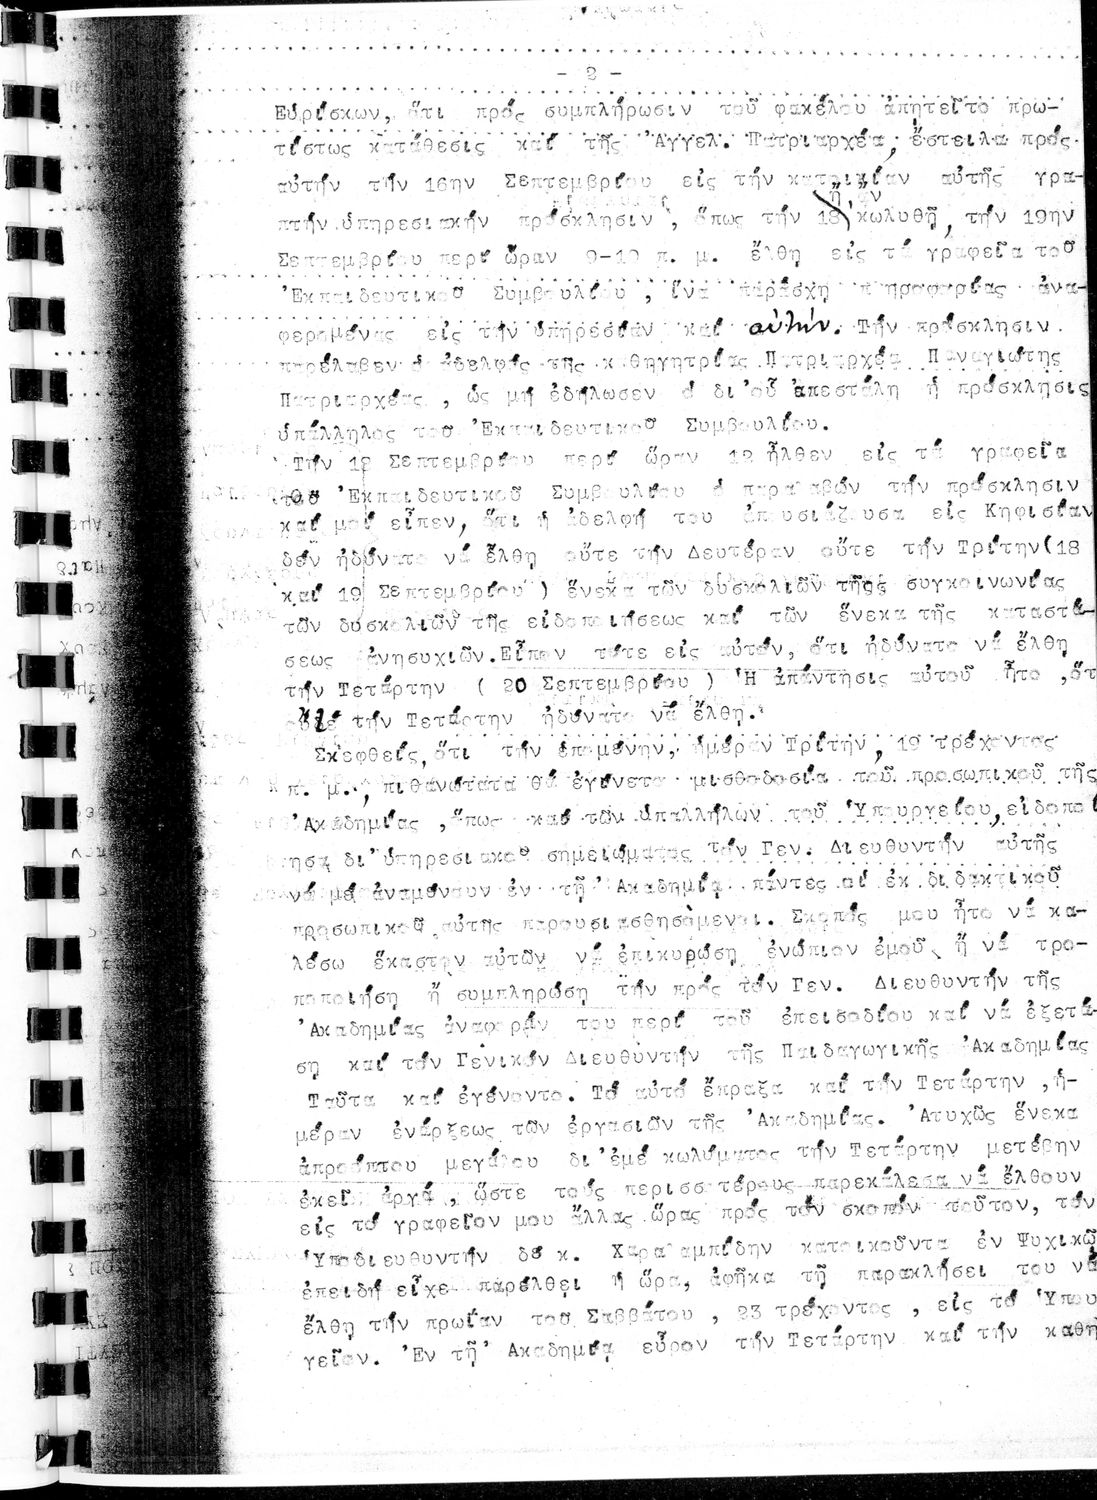 - 2 -
Εὑρίσκων, ὅτι πρός συμπλήρωσιν τοῦ φακέλου ἀπητεῖτο πρω-
τίστως κατάθεσις καί τῆς Ἀγγελ. Πατριαρχέα, ἔστειλα πρός
αὐτήν τήν 16ην Σεπτεμβρίου εἰς τήν κατοικίαν αὐτῆς γρα-
ἤ, ἄν
πτήν ὑπηρεσιακήν πρόσκλησιν, ὅπως τήν 18 κωλυθῇ, τήν 19ην
Σεπτεμβρίου περί ὥραν 9-10 π. μ. ἔλθῃ εἰς τά γραφεῖα τοῦ
Ἐκπαιδευτικοῦ Συμβουλίου, ἵνα παράσχῃ πληροφορίας ἀνα-
φερομένας εἰς τήν ὑπηρεσίαν καί αὐτήν. Τήν πρόσκλησιν
παρέλαβεν ὁ ἀδελφός τῆς καθηγητρίας Πατριαρχέα Παναγιώτης
Πατριαρχέας, ὡς μή ἐδήλωσεν ὁ δι'οὗ ἀπεστάλη ἡ πρόσκλησις
ὑπάλληλος τοῦ Ἐκπαιδευτικοῦ Συμβουλίου.
Τήν 18 Σεπτεμβρίου περί ὥραν 12 ἦλθεν εἰς τά γραφεῖα
τοῦ Ἐκπαιδευτικοῦ Συμβουλίου ὁ παραλαβών τήν πρόσκλησιν
καί μοί εἶπεν, ὅτι ἡ ἀδελφή του ἀπουσιάζουσα εἰς Κηφισίαν
δέν ἠδύνατο νά ἔλθῃ οὔτε τήν Δευτέραν οὔτε τήν Τρίτην(18
καί 19 Σεπτεμβρίου ) ἕνεκα τῶν δυσκολιῶν τῆς συγκοινωνίας
τῶν δυσκολιῶν τῆς εἰδοποιήσεως καί τῶν ἕνεκα τῆς καταστά-
σεως ἀνησυχιῶν.Εἶπον τότε εἰς αὐτόν, ὅτι ἠδύνατο νά ἔλθῃ
τήν Τετάρτην ( 20 Σεπτεμβρίου ) Ἡ ἀπάντησις αὐτοῦ ἦτο ,ὅτ
τήν Τετάρτην ἠδύνατο νά ἔλθῃ.
Σκεφθείς, ὅτι τήν ἑπομένην, ἡμέραν Τρίτην, 19 τρέχοντος
π. μ., πιθανώτατα θά ἐγίνετο μισθοδοσία τοῦ προσωπικοῦ τῆς
Ἀκαδημίας ,ὅπως καί τῶν ὑπαλλήλων τοῦ Ὑπουργείου, εἰδοποί
ησα δι'ὑπηρεσιακοῦ σημειώματος τόν Γεν. Διευθυντήν αὐτῆς
νά μέ ἀναμένουν ἐν τῇ Ἀκαδημίᾳ πάντες οἱ ἐκ διδακτικοῦ
προσωπικοῦ αὐτῆς παρουσιασθησόμενοι. Σκοπός μου ἦτο νά κα-
λέσω ἕκαστον αὐτῶν νά ἐπικυρώσῃ ἐνώπιον ἐμοῦ, ἤ νά τρο-
ποποιήσῃ ἤ συμπληρώσῃ τήν πρός τόν Γεν. Διευθυντήν τῆς
Ἀκαδημίας ἀναφοράν του περί τοῦ ἐπεισοδίου καί νά ἐξετά-
σῃ καί τόν Γενικόν Διευθυντήν τῆς Παιδαγωγικῆς Ἀκαδημίας
Ταῦτα καί ἐγένοντο. Τό αὐτό ἔπραξα καί τήν Τετάρτην ,ἡ-
μέραν ἐνάρξεως τῶν ἐργασιῶν τῆς Ἀκαδημίας. Ἀτυχῶς ἕνεκα
ἀπροόπτου μεγάλου δι'ἐμέ κωλύματος τήν Τετάρτην μετέβην
ἐκεῖ ἀργά , ὥστε τούς περισσοτέρους παρεκάλεσα νά ἔλθουν
εἰς τό γραφεῖον μου ἄλλας ὥρας πρός τόν σκοπόν τοῦτον, τόν
Ὑποδιευθυντήν δέ κ. Χαραλαμπίδην κατοικοῦντα ἐν Ψυχικῷ
ἐπειδή εἶχε παρέλθει ἡ ὥρα, ἀφῆκα τῇ παρακλήσει του νά
ἔλθῃ τήν πρωίαν τοῦ Σαββάτου , 23 τρέχοντος , εἰς τό Ὑπου
γεῖον. Ἐν τῇ Ἀκαδημίᾳ εὗρον τήν Τετάρτην καί τήν καθη